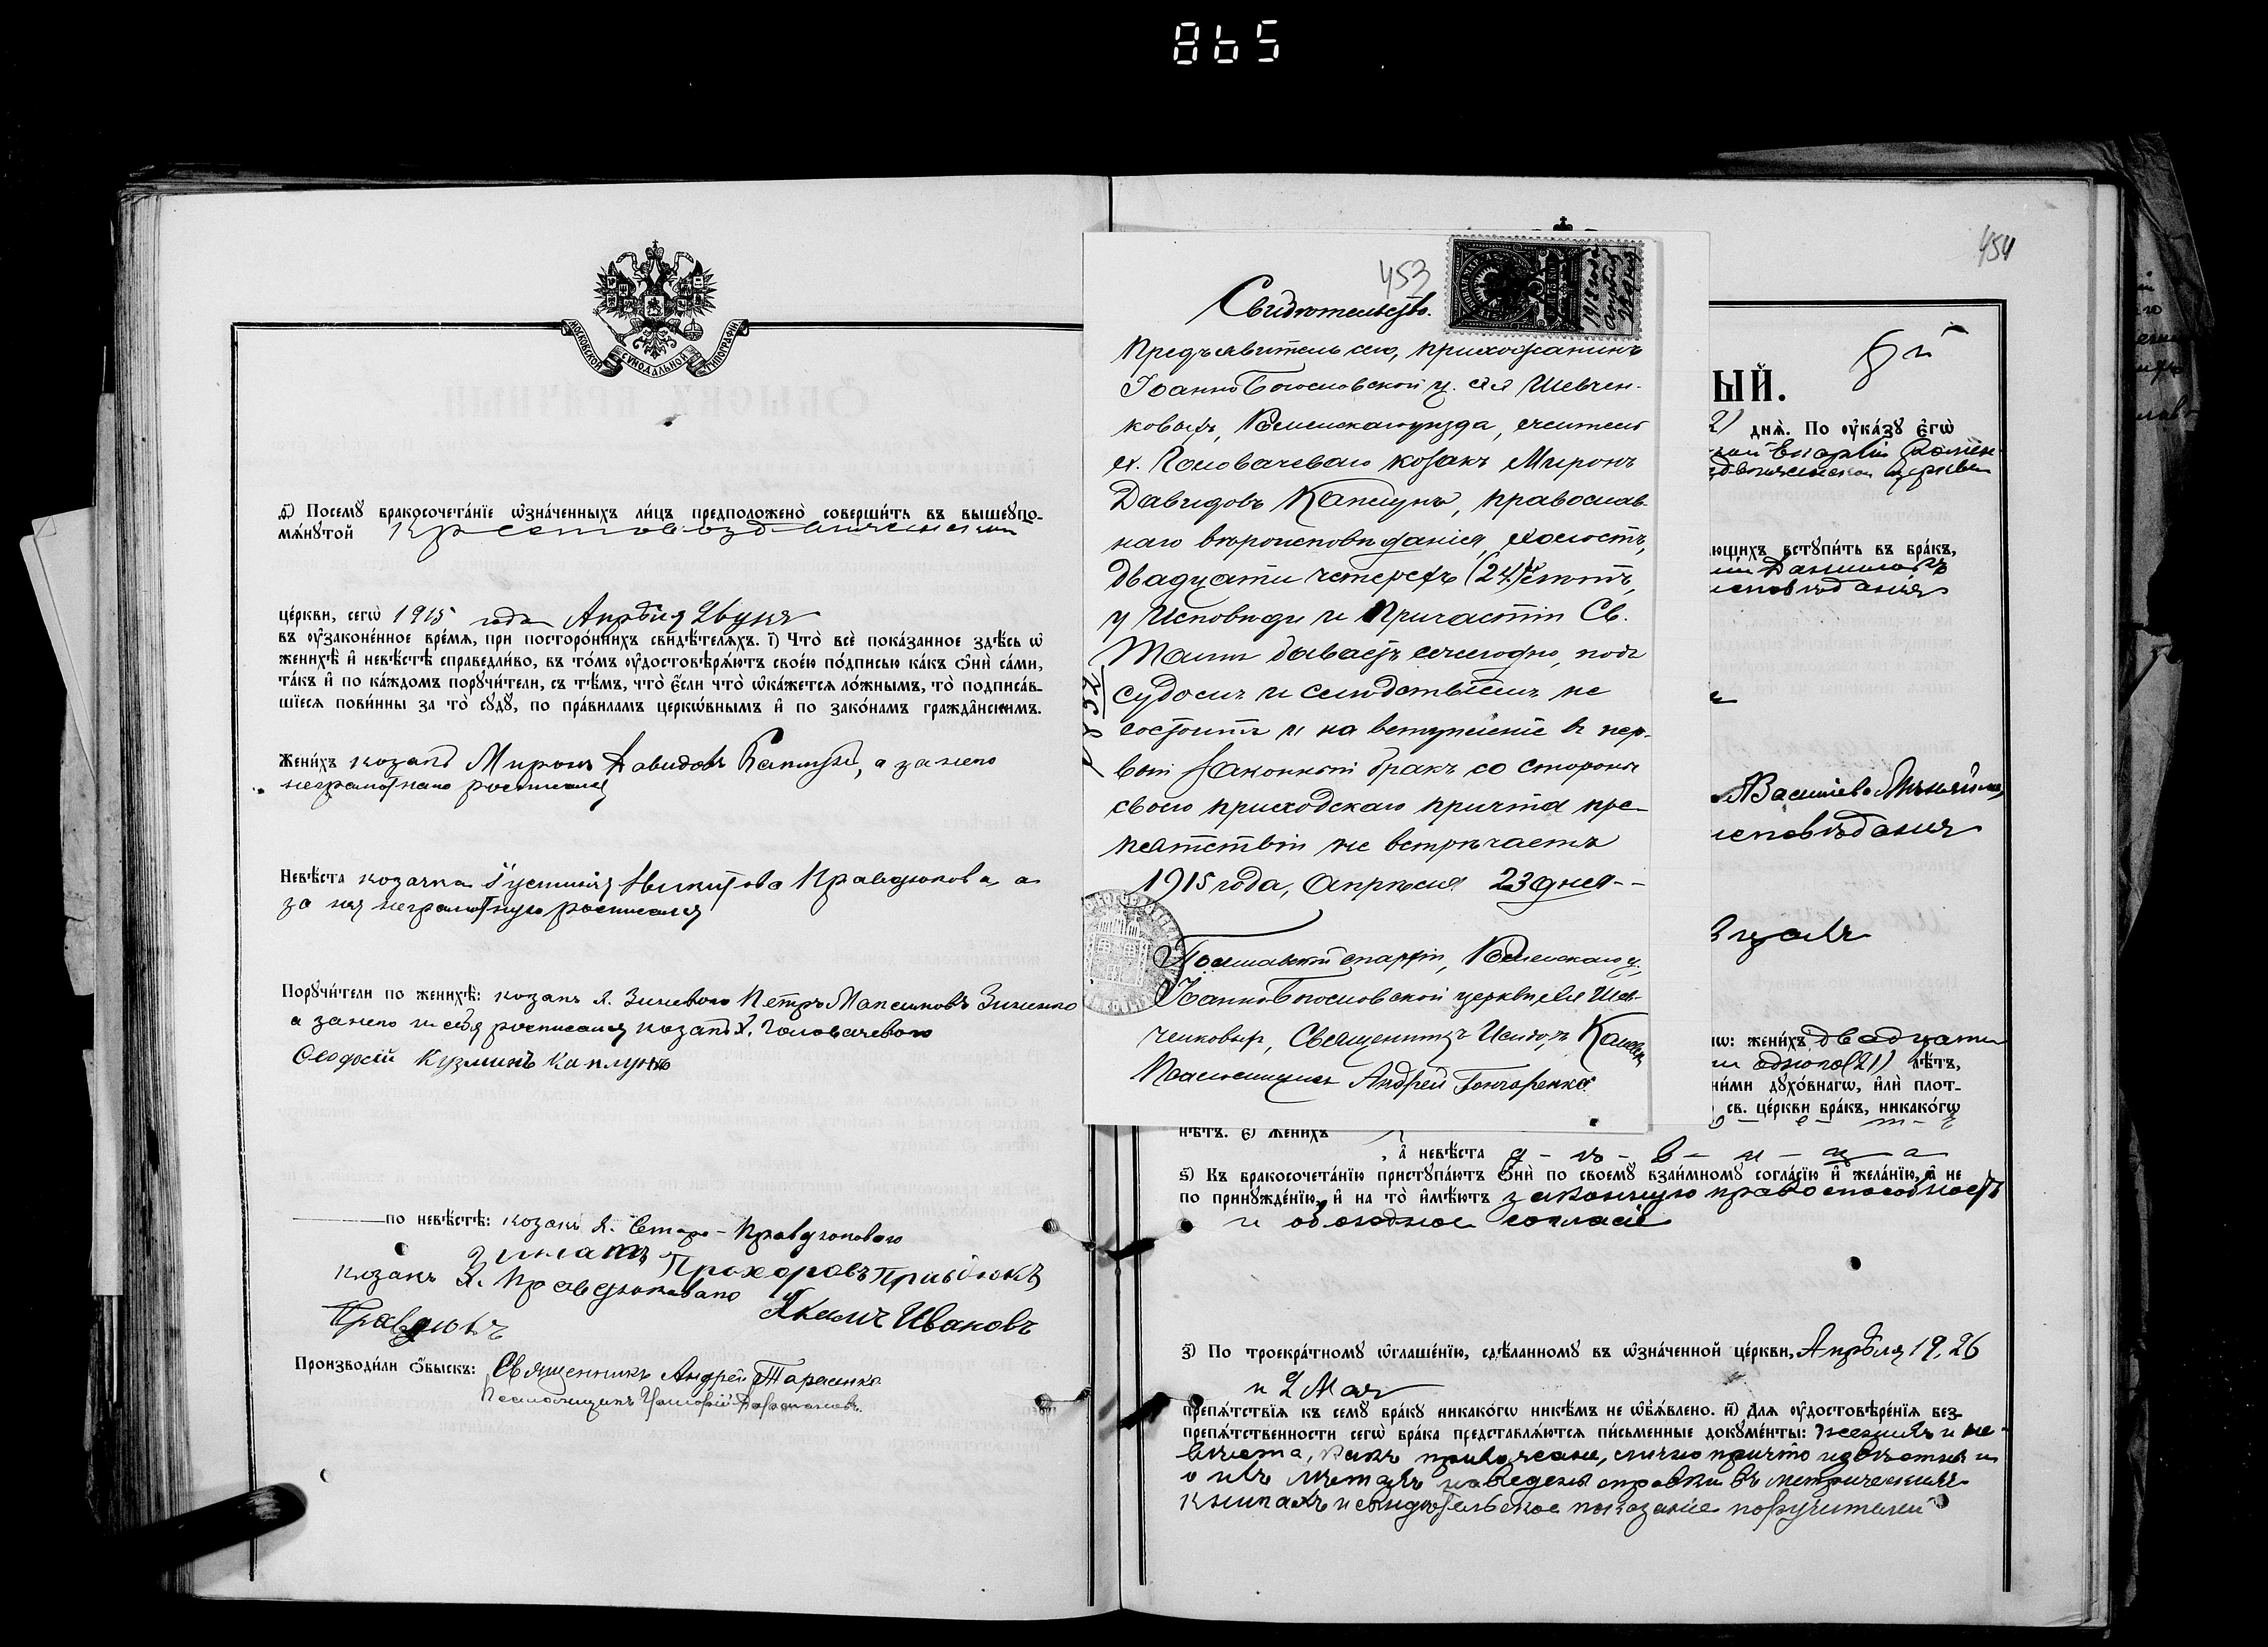 865
МОСКОВСКОЙ СУНОДАЛЬНОЙ ТИПОГРАФІИ
Посемꙋ бракосочетаніе ѡзначенныхъ лицъ предположено совершить въ вышеупо-
мянутой Крестовоздвиженской
церкви, сегѡ 1915 года Апрѣля
въ оузаконенное время, при постороннихъ свидѣтеляхъ. і) Что все показанное здѣсь ѡ
женихѣ и невѣстѣ справедливо, въ томъ оудостовѣряютъ своею подписью какъ ѻни сами,
такъ и по каждомъ поручители, съ тѣмъ, что если что ѡкажется ложнымъ, то подписав-
шіеся повинны за то судꙋ, по правиламъ церкѡвнымъ и по законамъ гражданскимъ.
Женихъ козакъ Миронъ Давидовъ Каплунъ, а за него
неграмотнаго росписался
Невѣста козачка Іустинія Никитова Правдюкова а
за нея неграмотную росписался
Поручители по женихѣ: козакъ х. Зинченого Петръ Максимовъ Зиненко
а за него и себя росписался козакъ х. Головачевого
Феодосій Кузминъ Каплунъ
по невѣстѣ: козакъ х. Старо-Правдюкового
Прохоровъ
козакъ х. Правдюкового
Якимъ Ивановъ
Правдюкъ
Производили ѻбыскъ: Священникъ Андрей Тарасенко
Псаломщикъ Григорій
453
Свидѣтельство.
1915 года апрѣля
Предъявитель сего, прихожанинъ
Іоанно Богословской ц. села Шевчен-
ковыхъ, Роменскаго уѣзда, житель
х. Головачеваго козакъ Миронъ
Давидовъ Каплунъ, православ-
наго вѣроисповѣданія, холостъ,
двадцати четырехъ (24) лѣтъ,
у Исповѣди и Причастія Св.
Таинъ бываетъ ежегодно, подъ
судомъ и слѣдствіемъ не
состоитъ и на вступленіе въ пер-
вый законный бракъ со стороны
своего приходскаго причта пре-
пятствій не встрѣчаетъ
1915 года, апрѣля 23 дня--
№ 32
Полтавской епархіи, Роменскаго у.
Іоанно-Богословской церкви села Шев-
ченковыхъ, Священникъ Исидоръ
Псаломщикъ Андрей Гончаренко
454
ЫЙ.
дня. По оуказꙋ егѡ
кой Епархіи Ромен
движенской церкви
ющихъ вступить въ бракъ,
Даниловъ
исповѣданія
Васильева
исповѣданія
ѡ: женихъ двадцати
одного (21) лѣтъ,
ними духовнагѡ, или плот-
св. церкви бракъ, никакогѡ
нѣтъ. е) женихъ
, а невѣста д-ѣ-в-и-ц-а
ѕ) Къ бракосочетанію приступаютъ ѻни по своему взаимному согласію и желанію, а не
по принужденію, и на то имѣютъ законную правоспособность
и обоюдное согласіе
з) По троекратному ѡглашенію, сдѣланному въ ѡзначенной церкви, Апрѣля 19, 26
и 2 Мая
препятствія къ семꙋ бракꙋ никакогѡ никѣмъ не ѡбъявлено. и) Для оудостовѣренія без-
препятственности сегѡ брака представляются письменные документы: женихъ и не-
вѣста, какъ прихожане, лично причту извѣстны и
о ихъ лѣтахъ наведены справки въ метрическихъ
книгахъ и свидѣтельское показаніе поручителей